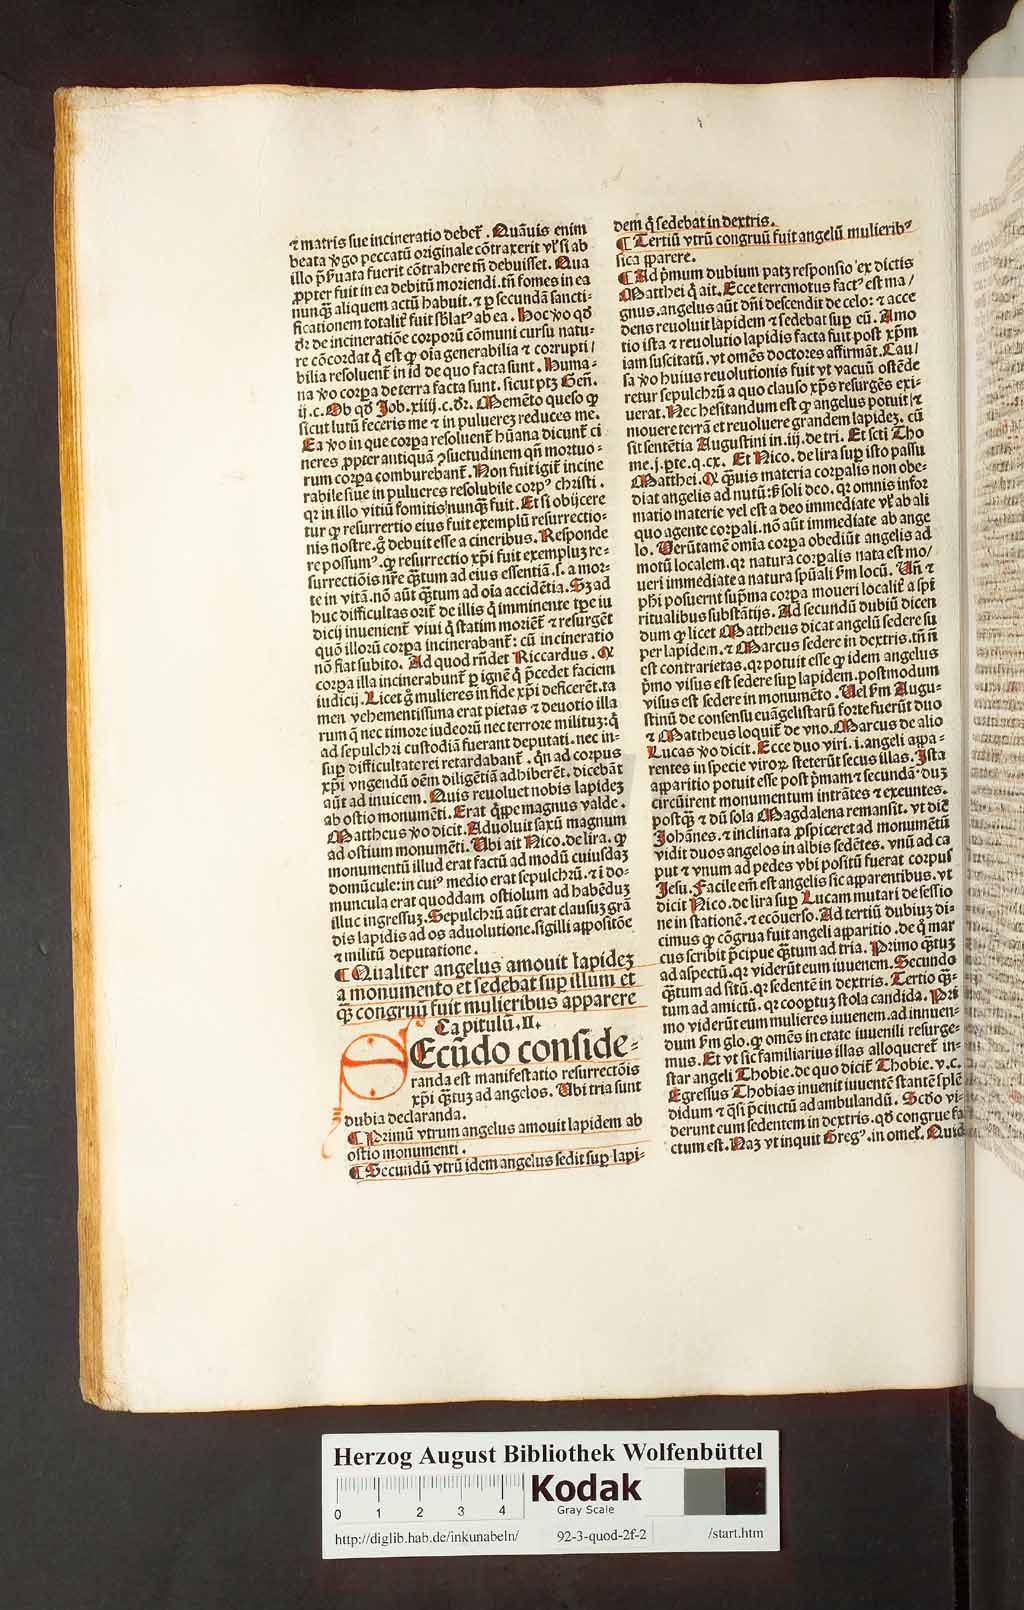 ⁊ matris sue incineratio debet̄. Quāuis enim
beata v̓go peccatū originale cōtraxerit vl̓ si ab
illo p̄ẜuata fuerit cōtrahere tn̄ debuisset. Qua
ꝓpter fuit in ea debitū moriendi. tn̄ fomes in ea
nunꝙ̄ aliquem actū habuit. ⁊ ꝑ secundā sancti-
ficationem totalit̓ fuit sblatꝰ ab ea. Hoc v̓o qđ
dr̄ de incineratiōe corporū cōmuni cursu natu-
re cōcordat q̓ est ꝙ oīa generabilia ⁊ corrupti/
bilia resoluent̄ in id de quo facta sunt. Huma-
na v̓o corpa de terra facta sunt. sicut ptꝫ Gen̄.
ij.c. Ob qđ Job.xiiij.c.dr̄. Memēto queso ꝙ
sicut lutū feceris me ⁊ in puluereꝫ reduces me.
Ea v̓o in que corꝑa resoluent̄ hūana dicunt̄ ci
neres ꝓpter antiquā ↄsuetudinem qn̄ mortuo-
rum corꝑa comburebant̄. Non fuit igit̄ incine
rabile siue in pulueres resolubile corpꝰ christi.
qꝛ in illo vitiū fomitis nunꝙ̄ fuit. Et si obijcere
tur ꝙ resurrertio eius fuit exemplū resurrectio-
nis nostre. g̊ debuit esse a cineribus. Responde
re possumꝰ. ꝙ resurrectio xp̄i fuit exempluꝫ re-
surrectiōis nr̄e ꝙ̄tum ad eius essentiā.s. a mor-
te in vitā. nō aūt ꝙ̄tum ad oīa accidētia. Sꝫ ad
huc difficultas orit̄ de illis q̓ imminente tꝑe iu
dicij inuenient̄ viui q̓ statim morient̄ ⁊ resurgēt
quō illorū corꝑa incinerabant̄: cū incineratio
nō fiat subito. Ad quod rn̄det Riccardus. Qꝛ
corꝑa illa incinerabunt̄ ꝑ ignē q̓ p̄cedet faciem
iudicij. Licet g̊ mulieres in fide xp̄i deficerēt. ta
men vehementissima erat pietas ⁊ deuotio illa
rum q̄ nec timore iudeorū nec terrore militūꝫ: q̓
ad sepulchri custodiā fuerant deputati. nec in-
suꝑ difficultate rei retardabant̄. qn̄ ad corpus
xp̄i vngendū oēm diligētiā adhiberēt. dicebāt
aūt ad inuicem. Quis reuoluet nobis lapideꝫ
ab ostio monumēti. Erat q̓ppe magnus valde.
Mattheus v̓o dicit. Aduoluit saxū magnum
ad ostium monumēti. Ubi ait Nico. de lira. ꝙ
monumentū illud erat factū ad modū cuiusdaꝫ
domūcule: in cuiꝰ medio erat sepulchrū. ⁊ i do-
muncula erat quoddam ostiolum ad habēduꝫ
illuc ingressuꝫ. Sepulchrū aūt erat clausuꝫ grā
dis lapidis ad os aduolutione. sigilli appositōe
⁊ militū deputatione.
¶ Qualiter angelus amouit lapideꝫ
a monumento et sedebat suꝑ illum et
ꝙ̄ congruū fuit mulieribus apparere
Capitulū. II.
SEcūdo conside-
randa est manifestatio resurrectōis
xp̄i ꝙ̄tuꝫ ad angelos. Ubi tria sunt
dubia declaranda.
¶ Primū vtrum angelus amouit lapidem ab
ostio monumenti.
¶ Secundū vtrū idem angelus sedit suꝑ lapi-
dem q̓ sedebat in dextris.
¶ Tertiū vtrū congruū fuit angelū mulieribꝰ
sica pparere.
¶ Ad p̓mum dubium patꝫ responsio ex dictis
Matthei q̓ ait. Ecce terremotus factꝰ est ma/
gnus. angelus aūt dn̄i descendit de celo: ⁊ acce
dens reuoluit lapidem ⁊ sedebat suꝑ eū. Amo
tio ista ⁊ reuolutio lapidis facta fuit post xp̄m
iam suscitatū. vt omēs doctores affirmāt. Cau/
sa v̓o huius reuolutionis fuit vt vacuū ostēde
retur sepulchrū a quo clauso xp̄s resurgēs exi-
uerat. Nec hesitandum est ꝙ angelus potuit ⁊
mouere terrā et reuoluere grandem lapideꝫ. cū
sit sentētia Augustini in.iij.de tri. Et scti Tho
me.j.ꝑte.q.cx. Et Nico. de lira suꝑ isto passu
Matthei. Qꝛ ꝙ̄uis materia corꝑalis non obe-
diat angelis ad nutū: ẜ soli deo. qꝛ omnis infor
matio materie vel est a deo immediate vl̓ ab ali
quo agente corꝑali. nō aūt immediate ab ange
lo. Uerūtamē omīa corꝑa obediūt angelis ad
motū localem. qꝛ natura corꝑalis nata est mo/
ueri immediate a natura sp̄uali ẜm locū. Un̄ ⁊
ph̄i posuerūt sup̄ma corꝑa moueri localit̓ a spi
ritualibus substātijs. Ad secundū dubiū dicen
dum ꝙ licet Mattheus dicat angelū sedere su
per lapidem. ⁊ Marcus sedere in dextris. tn̄ n̄
est contrarietas. qꝛ potuit esse ꝙ idem angelus
p̓mo visus est sedere suꝑ lapidem. postmodum
visus est sedere in monumēto. Uel ẜm Augu-
stinū de consensu euāgelistarū forte fuerūt duo
⁊ Mattheus loquit̄ de vno. Marcus de alio
Lucas v̓o dicit. Ecce duo viri.i.angeli appa-
rentes in specie viroꝝ steterūt secus illas. Ista
apparitio potuit esse post p̓mam ⁊ secundā. duꝫ
circūirent monumentum intrātes ⁊ exeuntes.
postꝙ̄ ⁊ dū sola Magdalena remansit. vt dic̄
Johānes. ⁊ inclinata ꝓspiceret ad monumētū
vidit duos angelos in albis sedētes. vnū ad ca
put ⁊ vnum ad pedes vbi positū fuerat corpus
Jesu. Facile em̄ est angelis sic apparentibus. vt
dicit Nico. de lira suꝑ Lucam mutari de sessio
ne in stationē. ⁊ ecōuerso. Ad tertiū dubiuꝫ di-
cimus ꝙ cōgrua fuit angeli apparitio. de q̓ mar
cus scribit p̄cipue ꝙ̄tum ad tria. Primo ꝙ̄tuꝫ
ad aspectū. qꝛ viderūt eum iuuenem. Secundo
ꝙ̄tum ad sitū. qꝛ sedentē in dextris. Tertio ꝙ̄-
tum ad amictū. qꝛ cooꝑtuꝫ stola candida. Pri
mo viderūt eum mulieres iuuenem. ad innuen-
dum ẜm glo. ꝙ omēs in etate iuuenili resurge-
mus. Et vt sic familiarius illas alloqueret̄ in-
star angeli Thobie. de quo dicit̄ Thobie.v.c.
Egressus Thobias inuenit iuuentē stantē splē
didum ⁊ q̄si p̄cinctū ad ambulandū. Scd̓o vi-
derunt eum sedentem in dextris. qđ congrue fa
ctum est. Naꝫ vt inquit Gregꝰ. in omel̓. Quid
Herzog August Bibliothek Wolfenbüttel
0 1 2 3 4
Kodak
Gray Scale
http://diglib.hab.de/inkunabeln/ 92-3-quod-2f-2 /start.htm